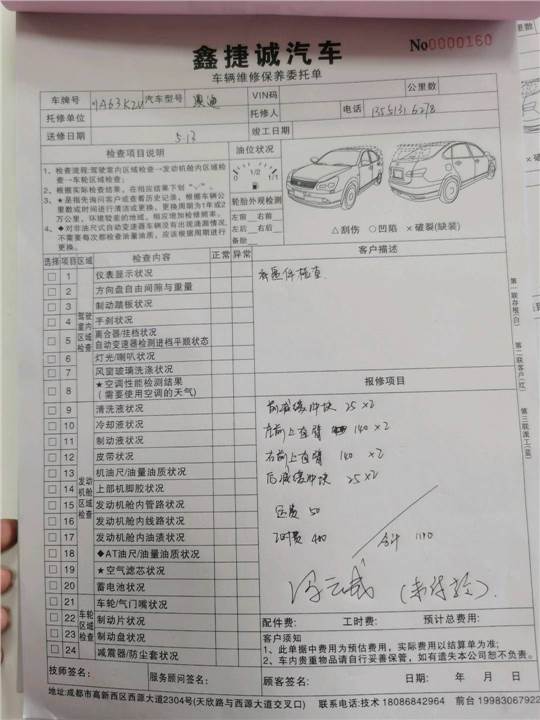 鑫捷诚汽车
No0000160
车辆维修保养委托单
车牌号 汽车型号 奥迪 VIN码 公里数
托修单位 托修人 电话
送修日期 5.13 竣工日期
检查项目说明
1、检查流程:驾驶室内区域检查→发动机舱内区域检查→车轮区域检查;
2、根据实际检查结果，在相应结果下划“√”。
3、★是指先询问客户或查看历史记录，根据车辆公里数或时间进行清洁或更换。更换周期为1年或2万公里，环境较差的地域，相应缩短检修频率。
4、◆对非油尺式自动变速器车辆没有出现渗漏情况,不需要每次都检查油量油质，应该根据周期进行更换。
油位状况
0 1/2 1/1
轮胎外观检测
左前 右前
左后 右后
备胎
△刮伤 ○凹陷 ×破裂(缺装)
选择 项目 区域 检查内容 正常 异常
驾驶室内区域检查
1 仪表显示状况
2 方向盘自由间隙与重量
3 制动踏板状况
4 手刹状况
5 离合器/挂档状况
自动变速器检测进档平顺状态
6 灯光/喇叭状况
7 风窗玻璃洗涤状况
8 ★空调性能检测结果
(需要使用空调的天气)
发动机舱区域检查
9 清洗液状况
10 冷却液状况
11 制动液状况
12 皮带状况
13 机油尺/油量油质状况
14 上部机脚胶状况
15 发动机舱内管路状况
16 发动机舱内线路状况
17 发动机舱内油渍状况
18 ◆AT油尺/油量油质状况
19 ★空气滤芯状况
20 蓄电池状况
车轮区域检查
21 车轮/气门嘴状况
22 制动片状况
23 制动盘状况
24 减震器/防尘套状况
客户描述
报修项目
前减缓冲块 25×2
左前上直臂 140×2
右前上直臂 140×2
后减缓冲块 25×2
运费 50
工时费 400 合计 1110
配件费: 工时费: 预计总费用:
客户须知
1、此单据中费用为预估费用，实际费用以结算单为准;
2、车内贵重物品请自行妥善保管，如有遗失本公司恕不负责。
技师签名: 服务顾问签名: 顾客签名: 日期: 年 月 日
地址:成都市高新西区西源大道2304号(天欣路与西源大道交叉口) 联系电话:技术 18086842964 前台 19983067922
第一联存根(白)
第二联客户(红)
第三联派工(蓝)